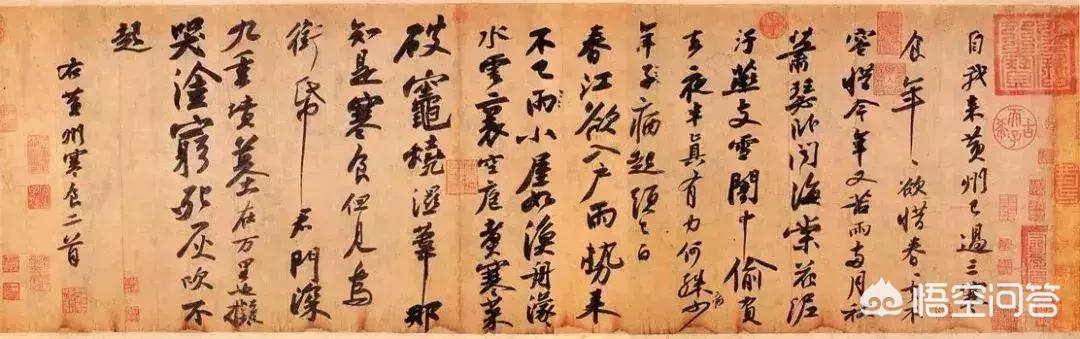 自我来黄州已過三寒
食年〻欲惜春〻去不
容惜今年又苦雨兩月秋
蕭瑟卧聞海棠花泥
汙燕支雪闇中偷負
去夜半真有力何殊少
年子病起頭已白
春江欲入户雨勢来
不已雨小屋如漁舟濛〻
水雲裏空庖煮寒菜
破竈燒濕葦那
知是寒食但見烏
銜帋君門深
九重墳墓在万里也擬
哭塗窮死灰吹不
起
右黄州寒食二首
古希天子
悟空问答